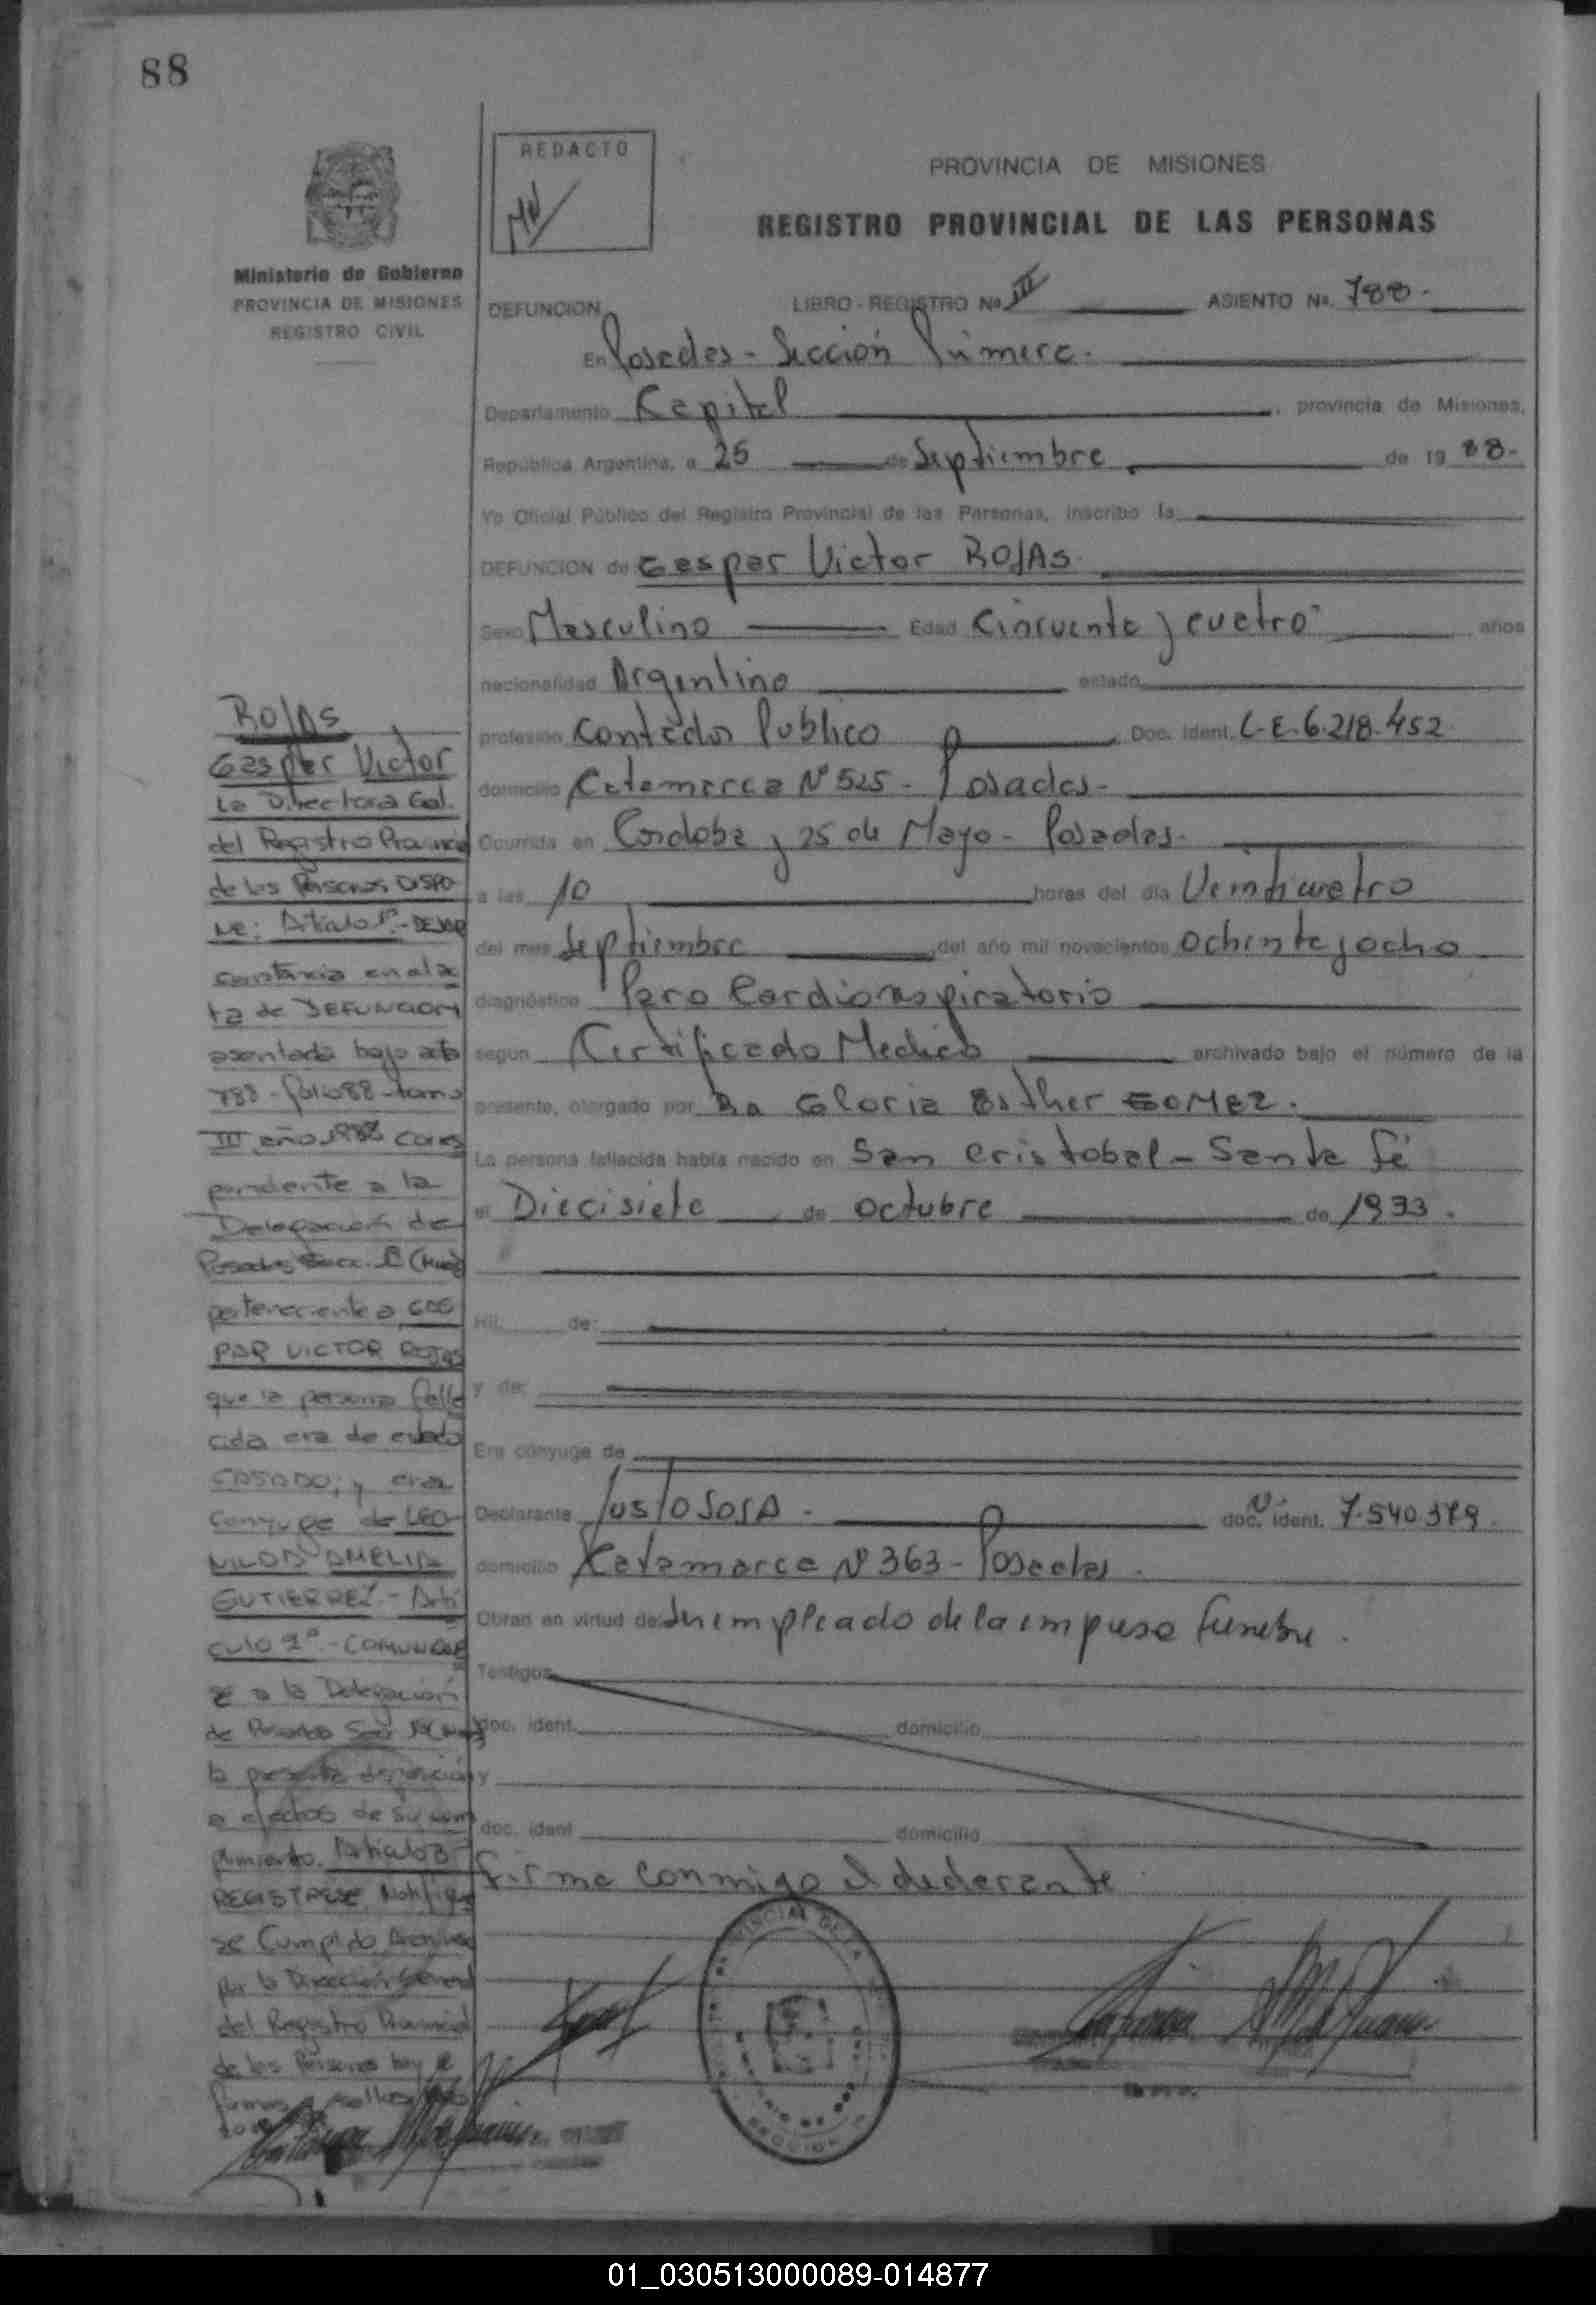 88
REDACTO
Ministerio de Gobierno
PROVINCIA DE MISIONES
REGISTRO CIVIL
PROVINCIA DE MISIONES
REGISTRO PROVINCIAL DE LAS PERSONAS
DEFUNCION LIBRO-REGISTRO No. III ASIENTO No. 788.-
En Posadas - Sección Primera.-
Departamento Kapital, provincia de Misiones,
República Argentina, a 25 de Septiembre de 19 88.-
Yo Oficial Público del Registro Provincial de las Personas, inscribo la
DEFUNCION de Gaspar Victor ROJAS
Sexo Masculino Edad Cincuenta y cuatro años
nacionalidad Argentina estado
profesión Contador Publico Doc. Ident. L-E-6.218.452
domicilio Catamarca Nº 525 - Posadas-
Ocurrida en Cordoba y 25 de Mayo - Posadas-
a las 10 horas del día Veinticuatro
del mes Septiembre del año mil novecientos ochenta y ocho
diagnóstico Paro Cardiorespiratorio
según Certificado Medico archivado bajo el número de la
presente, otorgado por Dra Gloria Esther GOMEZ.
La persona fallecida había nacido en San Cristobal - Santa Fé
el Diecisiete de octubre de 1933.
Hij. de:
y de:
Era cónyuge de
Declarante Justo SOSA. doc. ident. 7.540.379.
domicilio Catamarca Nº 363 - Posadas.
Obran en virtud de: Ser empleado de la empresa funebre.
Testigos
doc. ident. domicilio
y
doc. ident. domicilio
Firma conmigo el declarante
ROJAS
Gaspar Victor
La Directora Gral.
del Registro Provincial
de las Personas DISPO
NE: Articulo 1º.- DEJAR
constancia en el ac
ta de DEFUNCION
asentada bajo acta
788 - folio 88 - tomo
III año 1988 corres
pondiente a la
Delegación de
Posadas Secc. 1ª (Mnes)
perteneciente a GAS
PAR VICTOR ROJAS
que la persona falle
cida era de estado
CASADO; y era
conyuge de LEO
NILDA AMELIA
GUTIERREZ.- Artí
culo 2º.- COMUNIQUE
se a la Delegación
de Posadas Secc 1ª (Mnes)
la presente disposición
a efectos de su cum
plimiento. Articulo 3º
REGISTRESE Notifique
se Cumplido Archivese
por la Dirección General
del Registro Provincial
de las Personas hoy
01_030513000089-014877